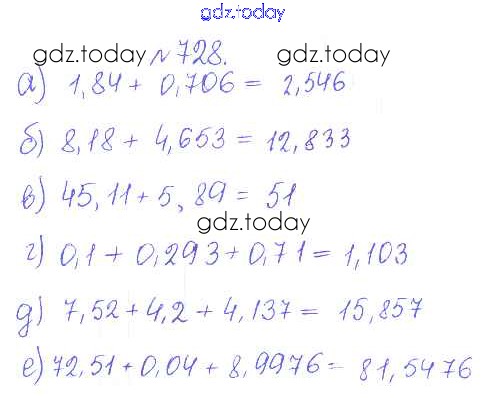 gdz.today
gdz.today № 728. gdz.today
а) 1,84 + 0,706 = 2,546
б) 8,18 + 4,653 = 12,833
в) 45,11 + 5,89 = 51
gdz.today
г) 0,1 + 0,293 + 0,71 = 1,103
д) 7,52 + 4,2 + 4,137 = 15,857
е) 72,51 + 0,04 + 8,9976 = 81,5476